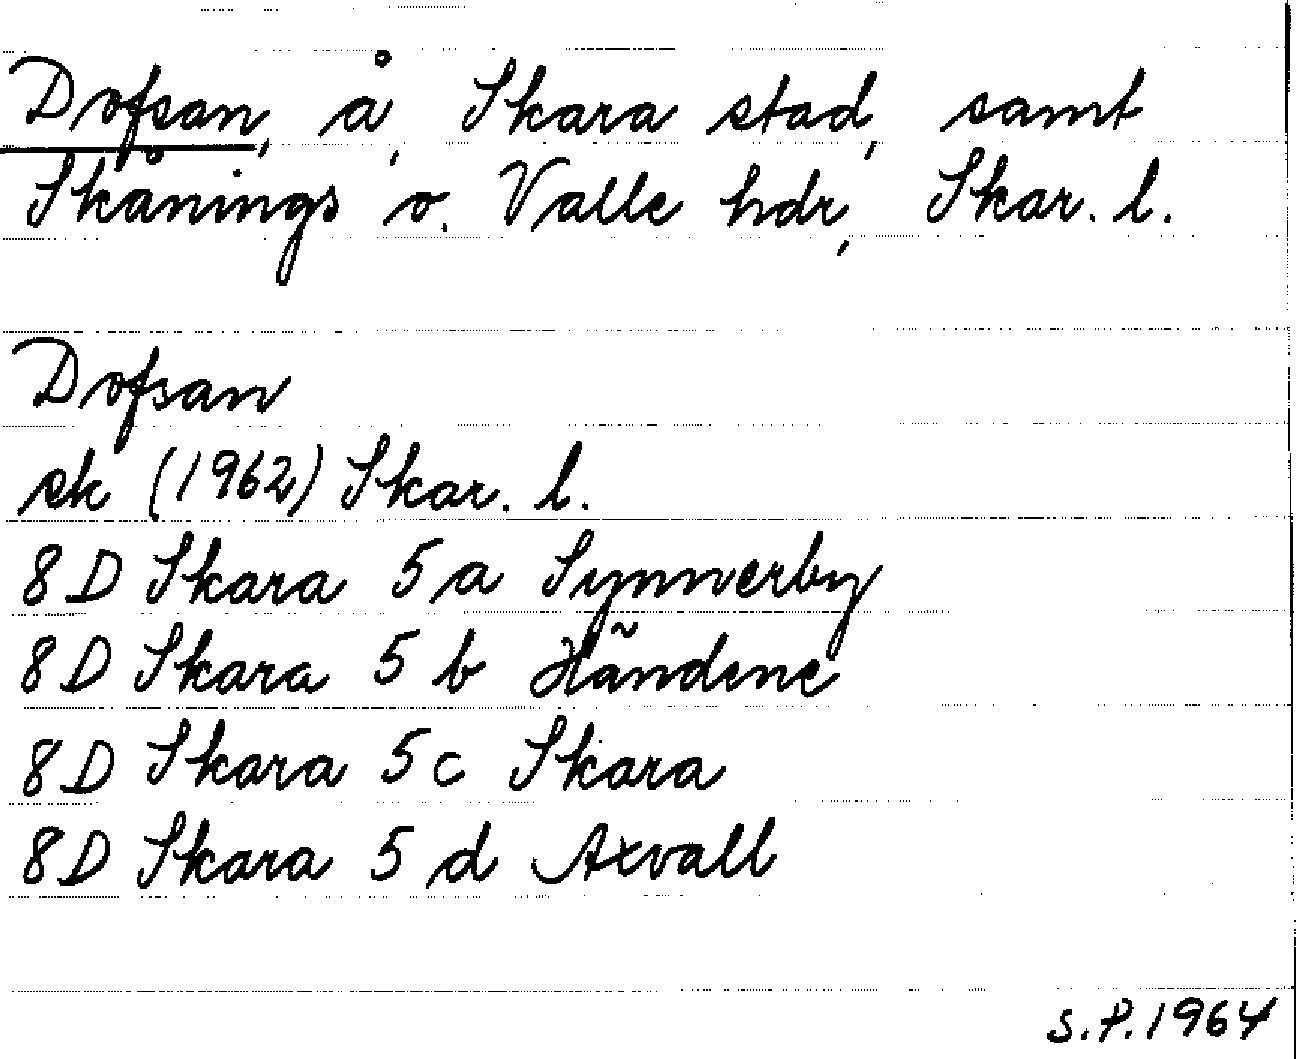 Dofsan, å, Skara stad, samt
Skånings o. Valle hdr, Skar. l.
Dofsan
ek (1962) Skar. l.
8D Skara 5 a Synnerby
8D Skara 5 b Händene
8D Skara 5 c Skara
8D Skara 5 d Axvall
S.P. 1964